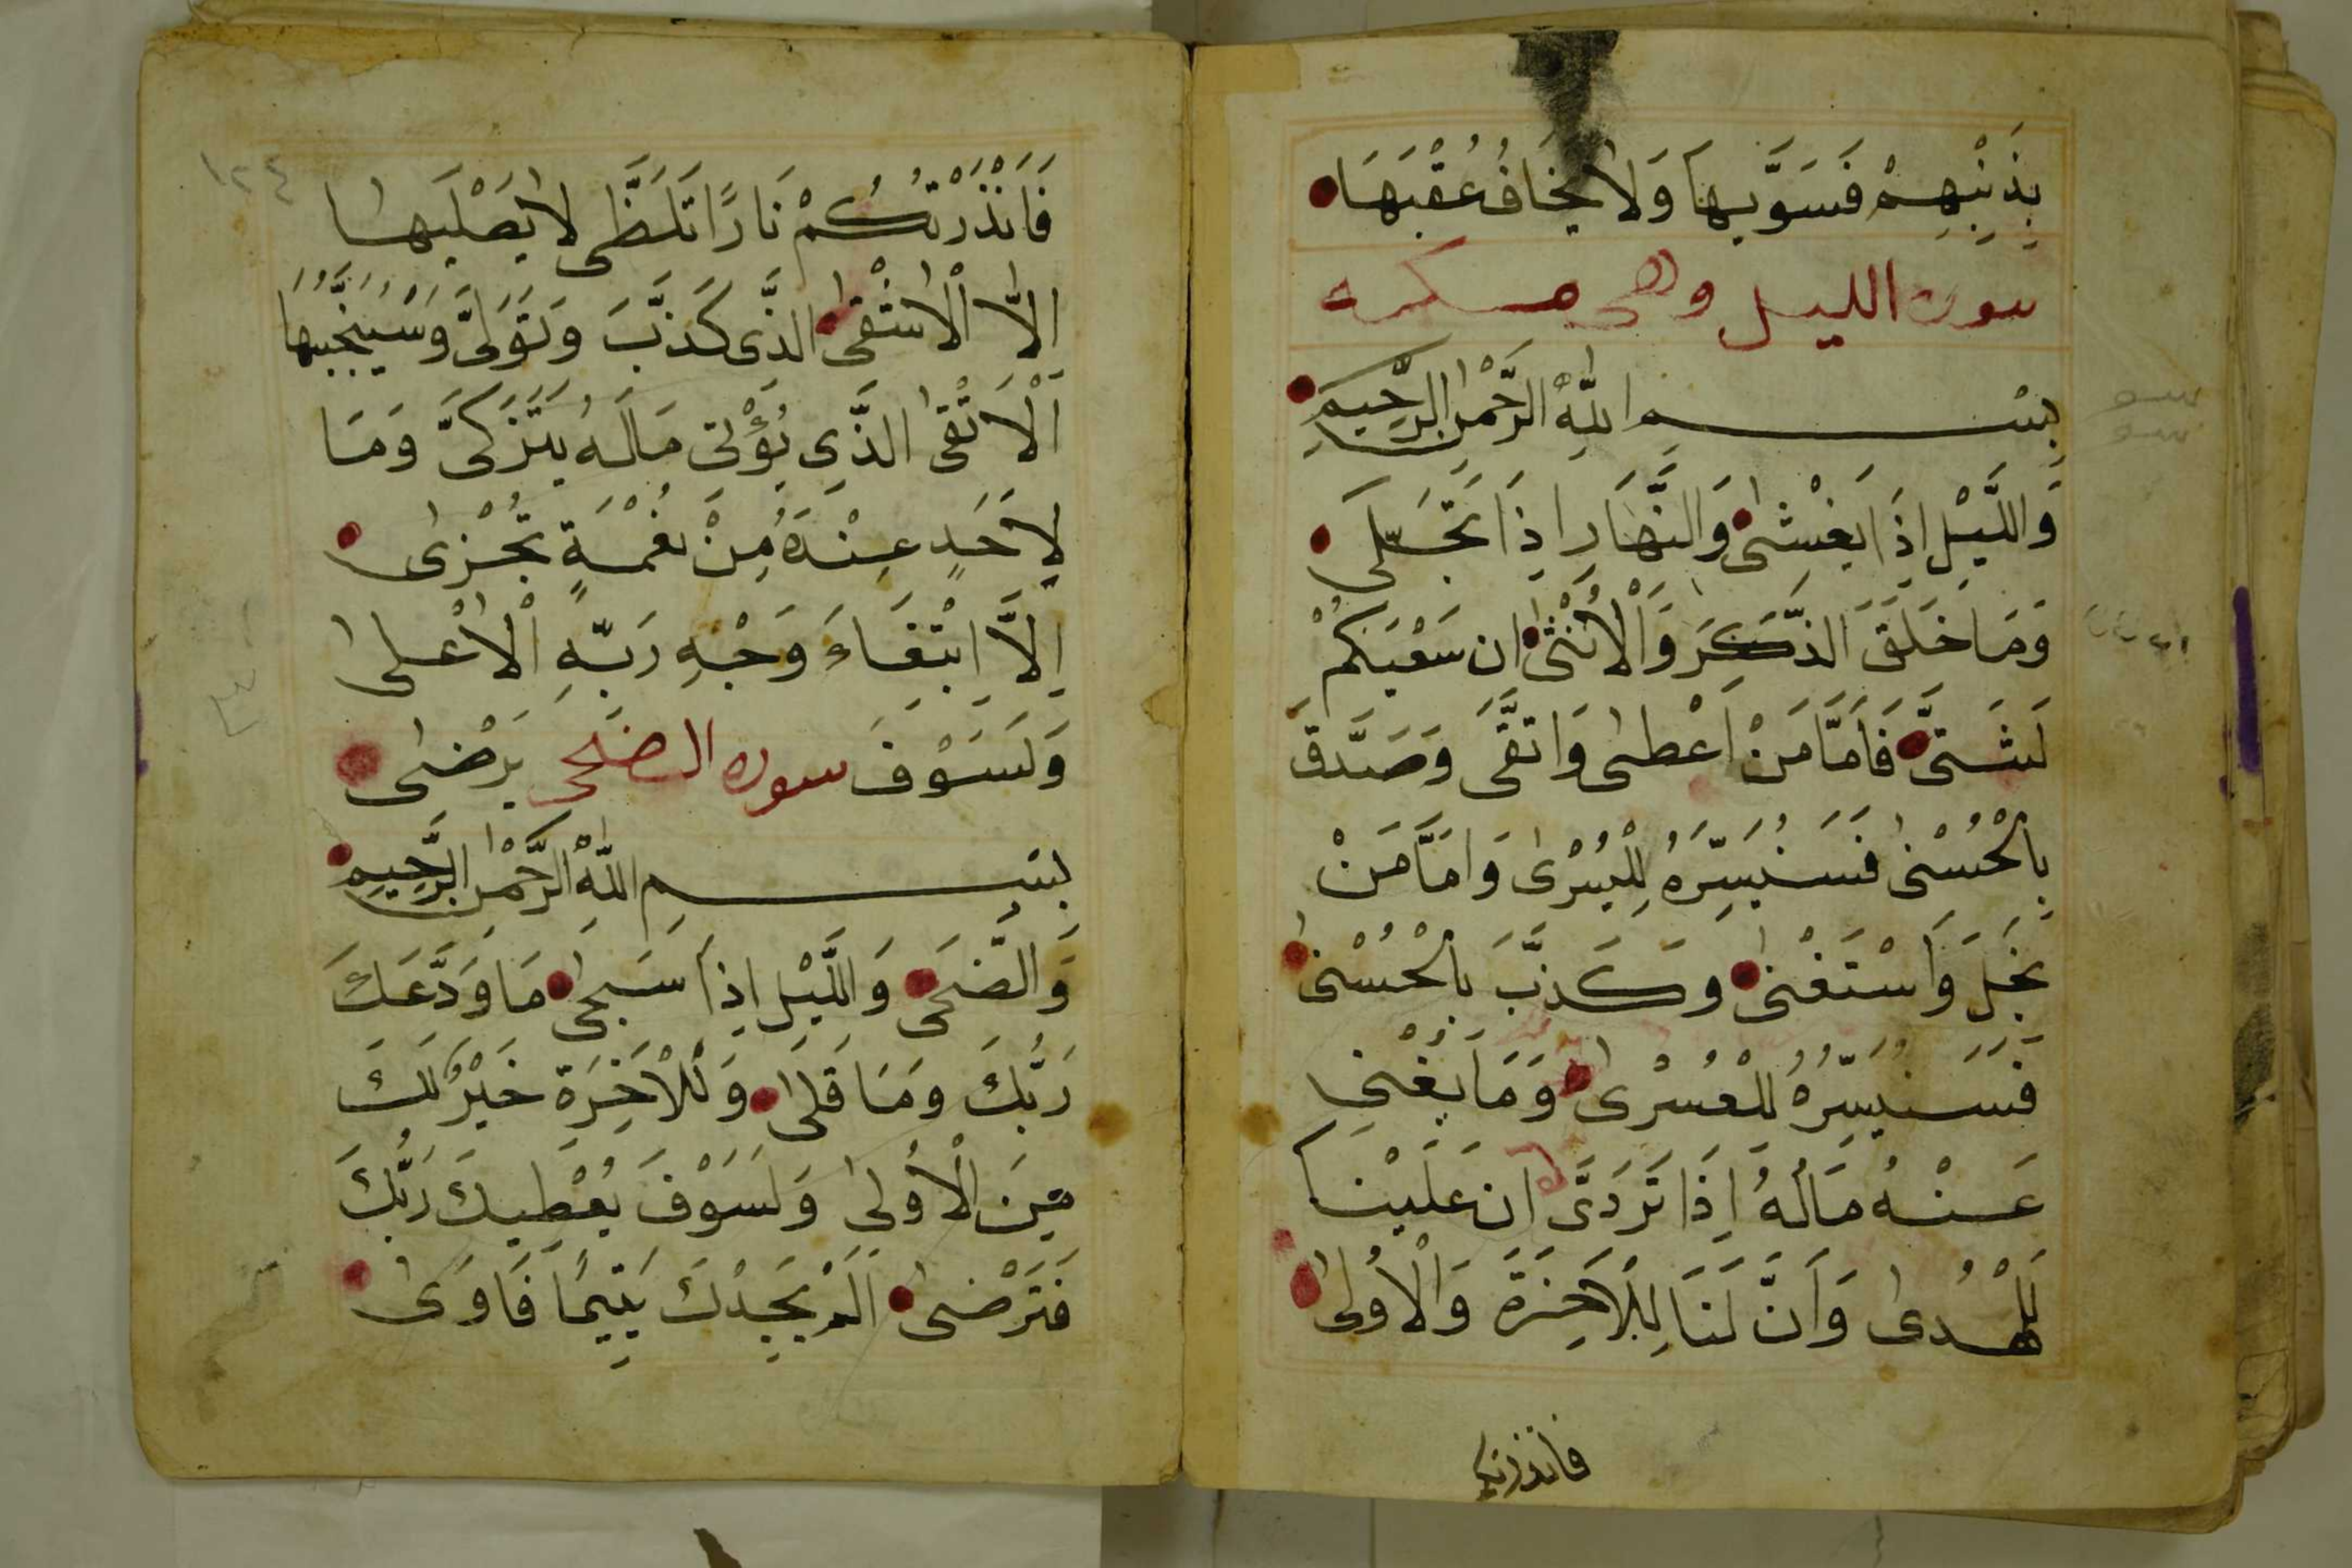 بِذَنْبِهِمْ فَسَوَّيهَا وَلَا يَخَافُ عُقْبَهَا
سورة الليل وهى مكية
بِسْمِ اللَّهِ الرَّحْمٰنِ الرَّحِيمِ
وَاللَّيْلِ اِذَا يَغْشٰى وَالنَّهَارِ اِذَا تَجَلّٰى
وَمَا خَلَقَ الذَّكَرَ وَالْاُنْثٰى ان سَعْيَكُمْ
لَشَتىَّ فَاَمَّا مَنْ اَعْطٰى وَاتَّقَى وَصَدَّقَ
بِالْحُسْنٰى فَسَنُيَسِّرُهُ لِلْيُسْرٰى وَاَمَّا مَنْ
بَخِلَ وَاسْتَغْنٰى وَكَذَّبَ بِالْحُسْنٰى
فَسَنُيَسِّرُهُ لِلْعُسْرٰى وَمَا يُغْنِى
عَنْهُ مَالُهُ اِذَا تَرَدَّى ان عَلَيْنَا
لَلْهُدٰى وَاَنَّ لَنَا لِلْاَخِرَةَ وَالْاُولٰى
فانذرتكم
١٢٤
فَاَنْذَرْتُكُمْ نَارًا تَلَظَّى لا يَصْلَيهَا
اِلَّا الْاَشْقٰى الذَّى كَذَّبَ وَتَوَلىَّ وَسَيُجَنَّبُهَا
اَلْاَتْقٰى الذَّى يُؤْتِى مَالَهُ يَتَزَكىَّ وَمَا
لِاَحَدٍ عِنْدَهُ مِنْ نِعْمَةٍ تُجْزٰى
اِلَّا ابْتِغَاءَ وَجْهِ رَبِّهِ الْاَعْلٰى
وَلَسَوْفَ يَرْضٰى سورة الضحى
بِسْمِ اللَّهِ الرَّحْمٰنِ الرَّحِيمِ
وَالضُّحَى وَاللَّيْلِ اِذَا سَجٰى مَا وَدَّعَكَ
رَبُّكَ وَمَا قَلٰى وَلَلْاَخِرَةِ خَيْرٌ لَكَ
مِنَ الْاُولٰى وَلَسَوْفَ يُعْطِيكَ رَبُّكَ
فَتَرْضٰى اَلَمْ يَجِدْكَ يَتِيمًا فَاَوٰى